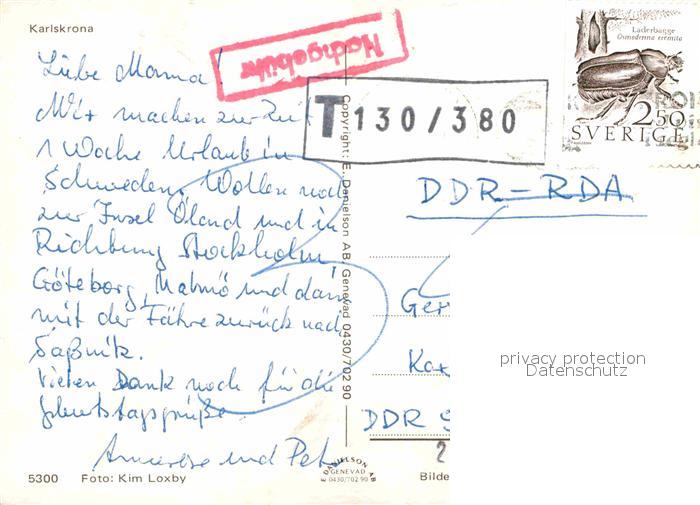 Karlskrona
Liebe Mama!
Wir machen zur Zeit
1 Woche Urlaub in
Schweden. Wollen noch
zur Insel Öland und in
Richtung Stockholm,
Göteborg, Malmö und dann
mit der Fähre zurück nach
Saßnitz.
Vielen Dank noch für die
Geburtstagsgrüße.
Annerose und Pet
5300 Foto: Kim Loxby
Nachgebühr
T 130/380
Läderbagge
Osmoderma eremita
2.50
SVERIGE
Copyright: E. Danielson AB Genevad 0430/702 90
DDR-RDA
Ger
Kax
DDR
2
privacy protection
Datenschutz
E DANIELSON AB
GENEVAD
0430/702 90
Bilde